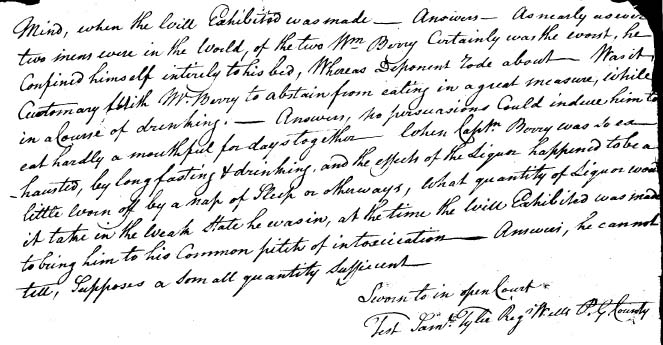 Mind, when the Will Exhibited was made — Answers — As nearly as ever
two mens were in the World, of the two Wm Berry Certainly was the worst, he
Confined himself intirely to his bed, Whereas Deponent rode about — Was it
Customary with Mr Berry to abstain from eating in a great measure, while
in a Course of drinking. — Answers, no persuasions Could induce him to
eat hardly a mouthful for days together — When Captn Berry was so ex-
-hausted, by long fasting & drinking, and the effects of the Liquor happened to be a
little worn off by a nap of Sleep or otherways, What quantity of Liquor woud
it take in the weak State he was in, at the time the Will Exhibited was made
to bring him to his Common pitch of intoxication — Answers, he cannot
tell, Supposes a small quantity Sufficient —
Sworn to in open Court
Test Saml Tyler Regr Wills P. G. County